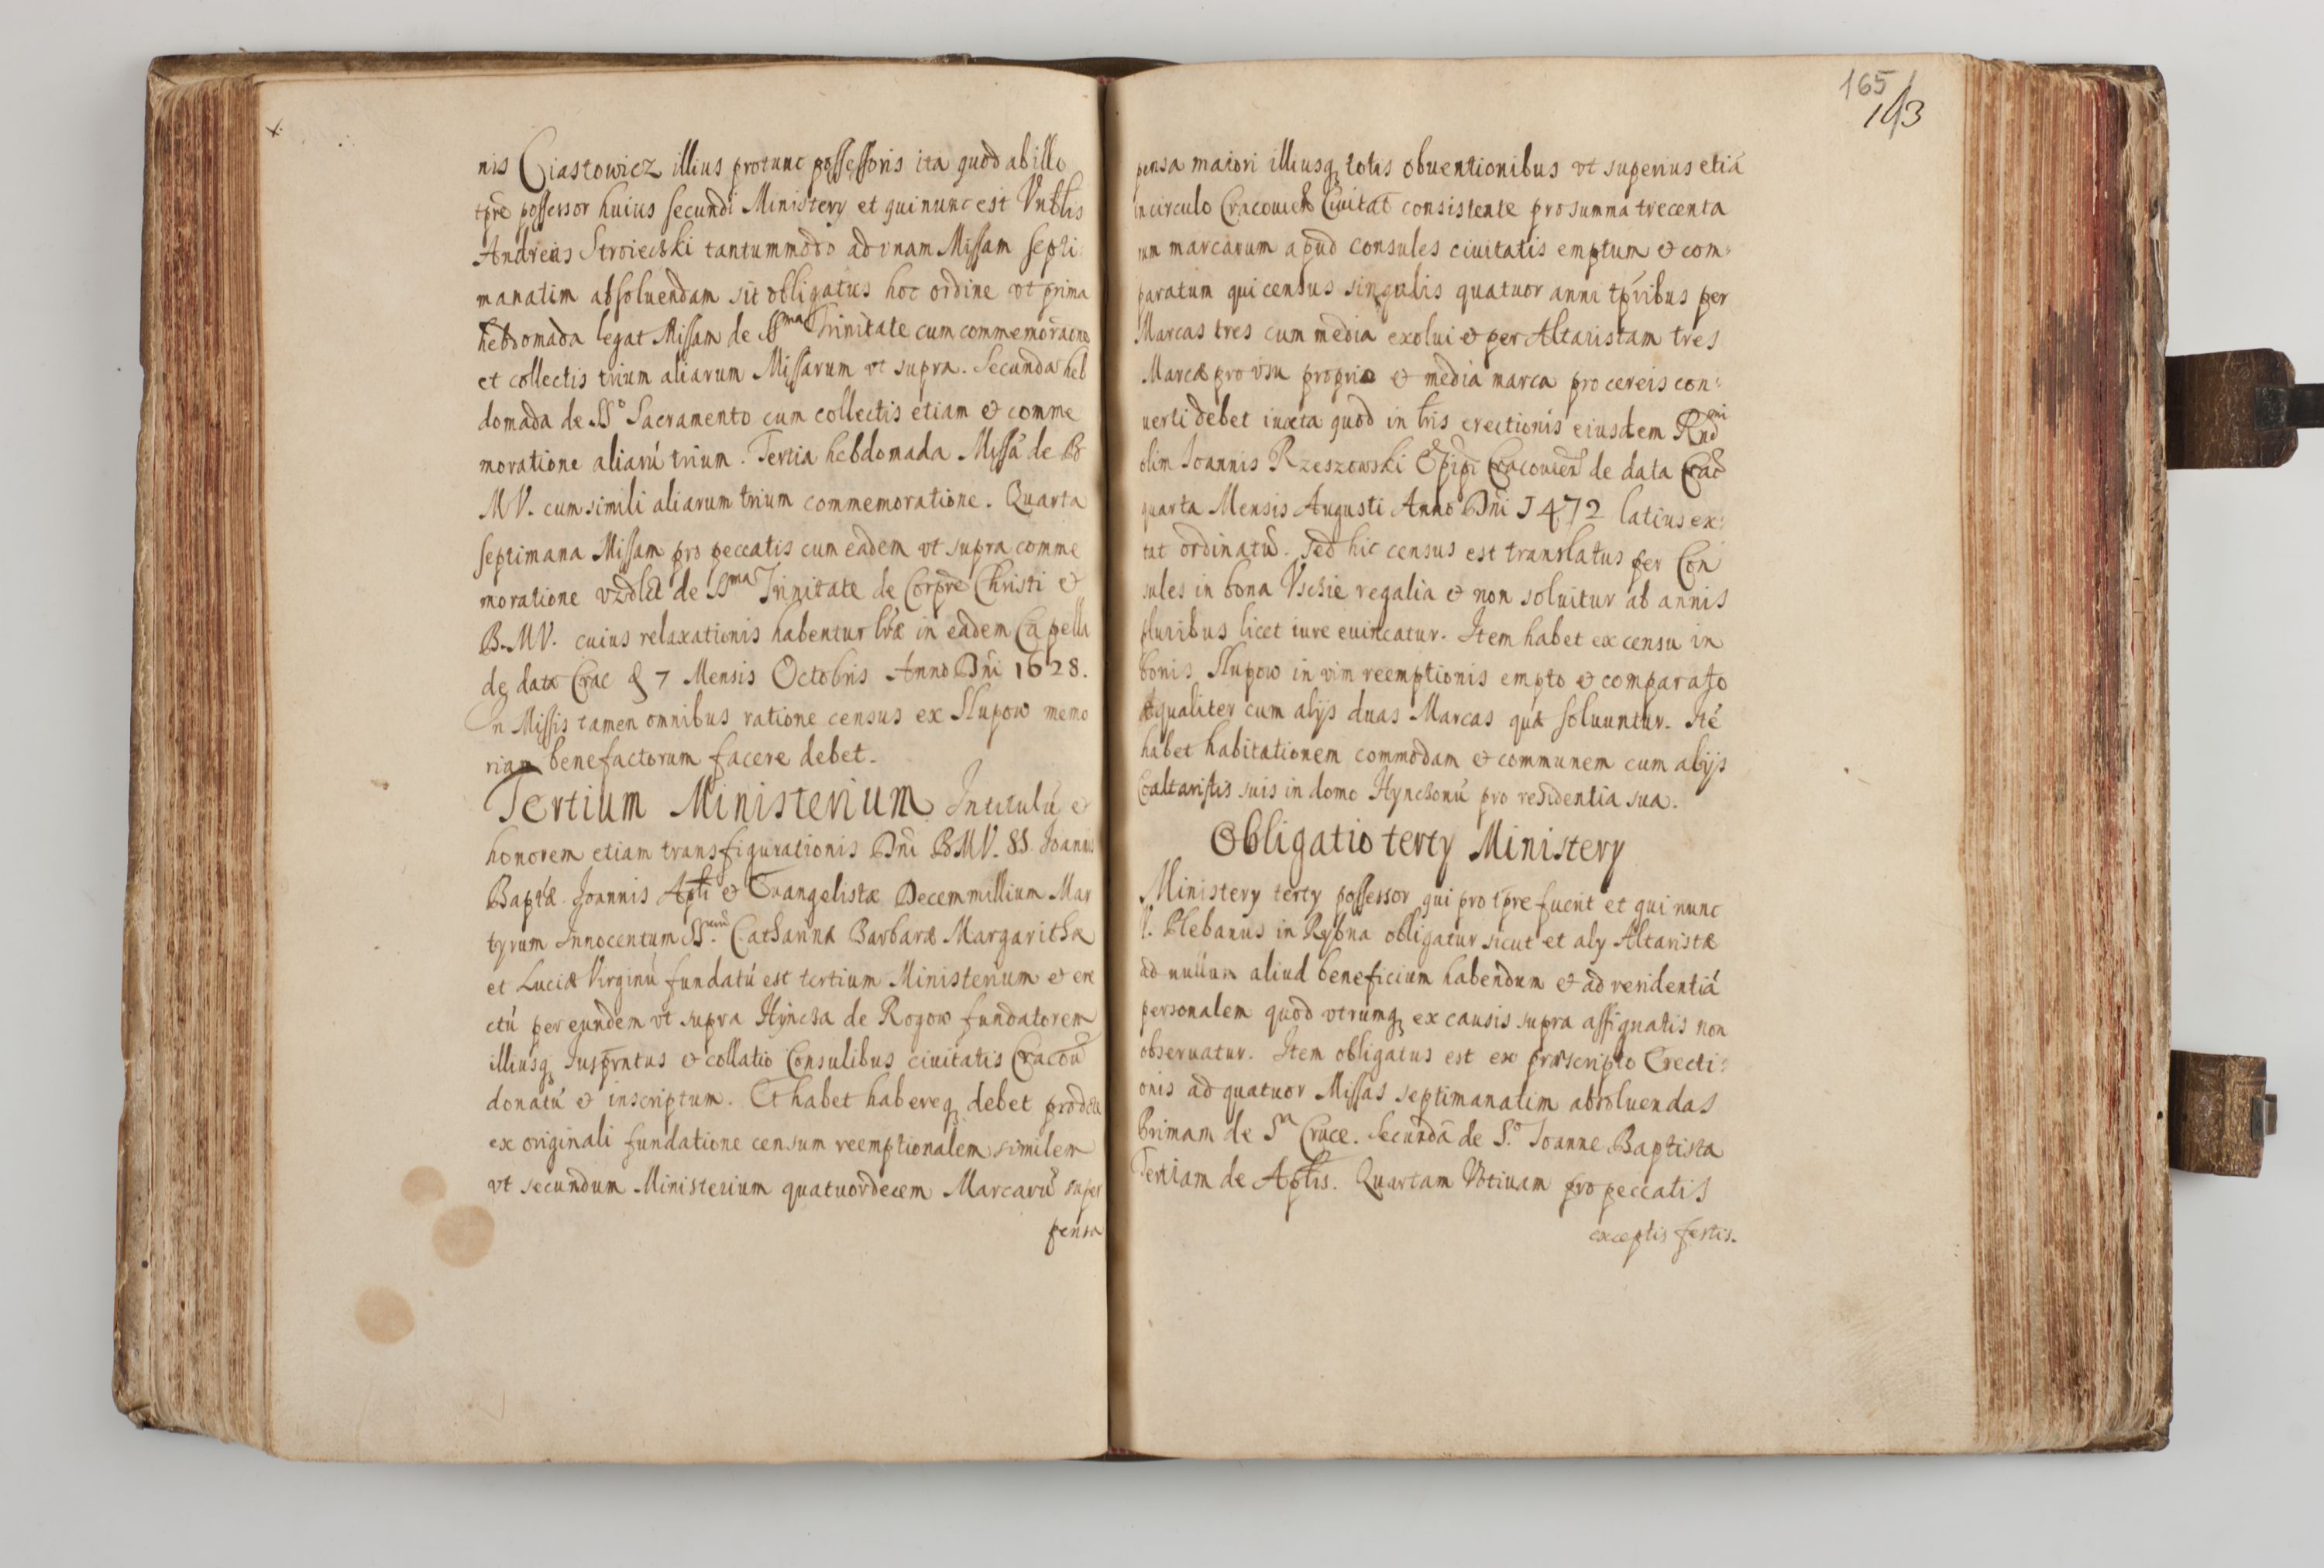 nis Ciastowicz illius protunc possessoris ita quod ab illo
tp̄re possessor huius secundi Ministery et qui nunc est Vnblis
Andreas Stroiecski tantummodo ad vnam Missam septi:
manatim absoluendam sit obligatus hoc ordine vt prima
hebdomada legat Missam de SSma Trinitate cum commemoraōne
et collectis trium aliarum Missarum vt supra. Secunda heb
domada de SSo Sacramento cum collectis etiam & comme
moratione aliarú trium. Tertia hebdomada Missā de B
MV. cum simili aliarum trium commemoratione. Quarta
septimana Missam pro peccatis cum eadem vt supra comme
moratione vzdlct de SSma Trinitate de Corpre Christi &
B.MV. cuius relaxationis habentur lræ in eadem Capella
de data Crac 7 Mensis Octobris Anno Dni 1628.
In Missis tamen omnibus ratione census ex Slupow memo
riam benefactorum facere debet.
Tertium Ministerium Intitulú &
honorem etiam transfigurationis Dni BMV. SS. Joannis
Baptæ Joannis Apli & Euangelistæ Decem millium Mar
tyrum Innocentum SS. Catharinæ Barbaræ Margarithæ
et Luciæ Virginú fundatú est tertium Ministerium & ere
ctú per eundem vt supra Hynczka de Rogow fundatorem
illiusq Juspr̄ntus & collatio Consulibus ciuitatis Cracou
donatú & inscriptum. Et habet habereq debet
ex originali fundatione censum reemptionalem similem
vt secundum Ministerium quatuordecem Marcarú super
pensa
165
143
pensa maiori illiusq totis obuentionibus vt superius etiá
in circulo Cracouien Ciuitat consistente pro summa trecenta
rum marcarum apud consules ciuitatis emptum & com:
paratum qui census singulis quatuor anni tp̄ribus per
Marcas tres cum media exolui & per Altaristam tres
Marcæ pro vsu proprio & media marca pro cereis con:
uerti debet iuxta quod in lris erectionis eiusdem Rndmi
olim Joannis Rzeszowski Epipi Cracouien de data Crac
quarta Mensis Augusti Anno Dni 1472 latius ex:
tat ordinatú. Sed hic census est translatus per Con
sules in bona Vscie regalia & non soluitur ab annis
pluribus licet iure euincatur. Item habet ex censu in
bonis Slupow in vim reemptionis empto & comparato
æqualiter cum alijs duas Marcas quæ soluuntur. Ité
habet habitationem commodam & communem cum alijs
Coaltaristis suis in domo Hynckonú pro residentia sua.
Obligatio terty Ministery
Ministery terty possessor qui pro tp̄re fuerit et qui nunc
Plebanus in Rybna obligatur sicut et aly Altaristæ
ad nullum aliud beneficium habendum & ad residentiá
personalem quod vtrumq ex causis supra assignatis non
obseruatur. Item obligatus est ex præscripto Erecti:
onis ad quatuor Missas septimanatim absoluendas
Primam de Sa Cruce. Secundā de S.o Joanne Baptista
Tertiam de Aplis. Quartam Votiuam pro peccatis
exceptis festis.